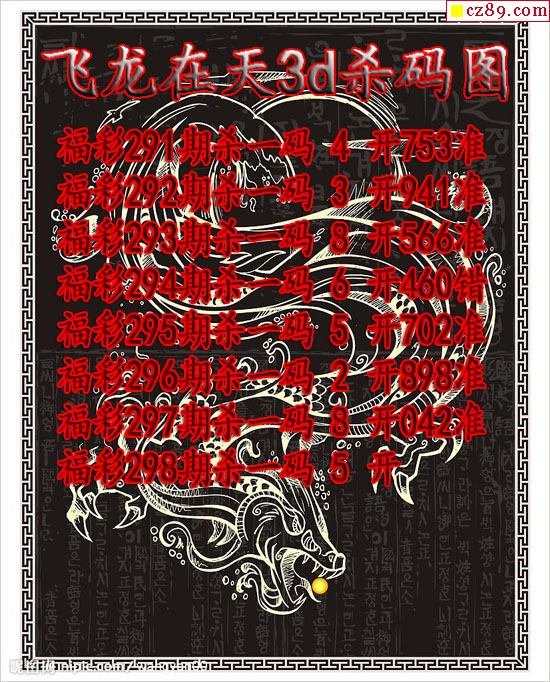 cz89.com
飞龙在天3d杀码图
福彩291期杀一码 4 开753准
福彩292期杀一码 3 开941准
福彩293期杀一码 8 开566准
福彩294期杀一码 6 开460错
福彩295期杀一码 5 开702准
福彩296期杀一码 2 开898准
福彩297期杀一码 8 开042准
福彩298期杀一码 5 开